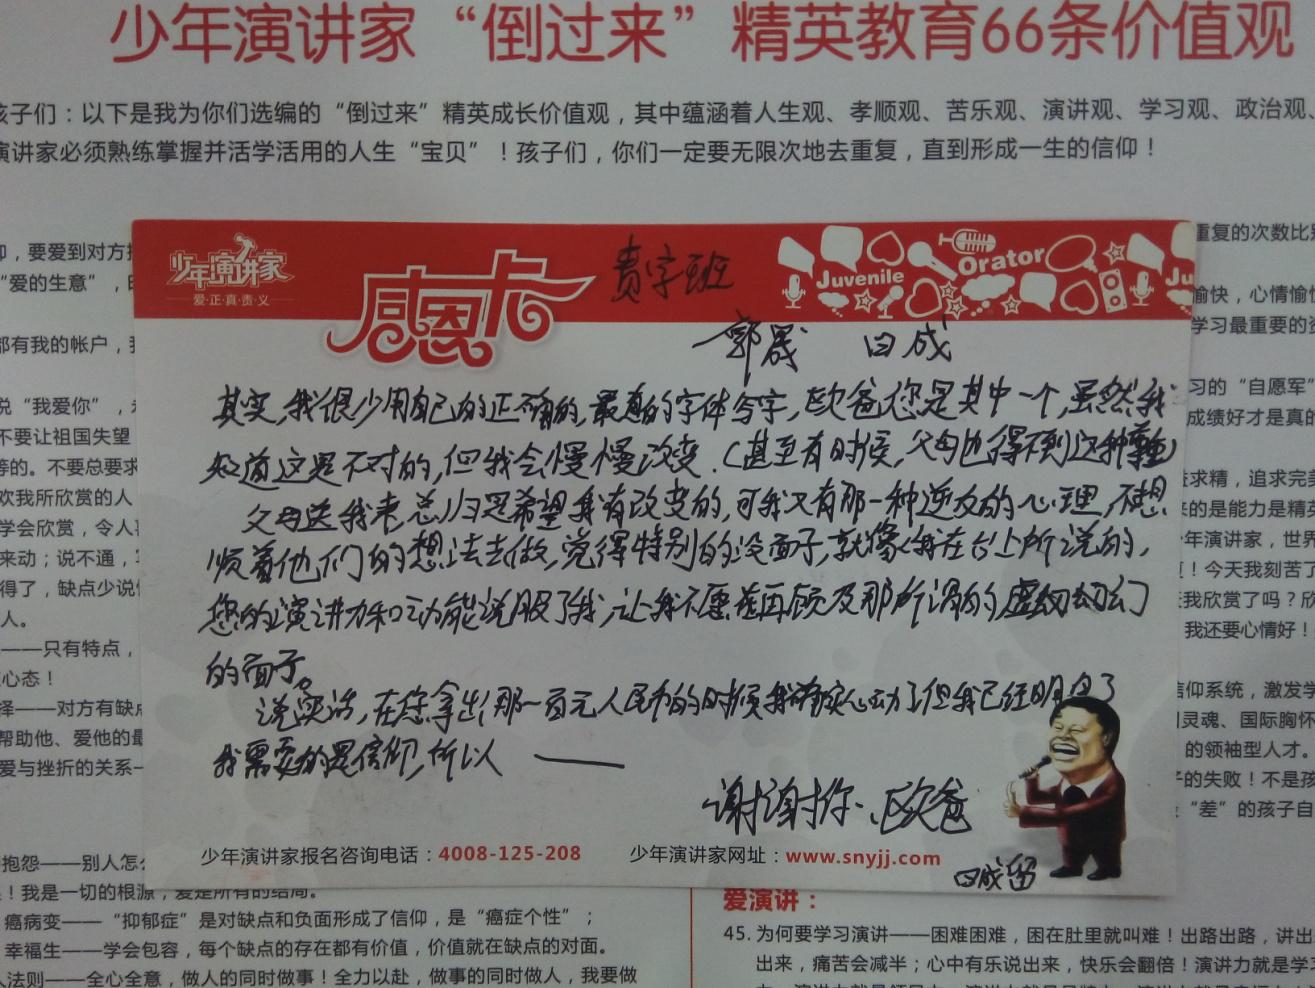 少年演讲家“倒过来”精英教育66条价值观
孩子们：以下是我为你们选编的“倒过来”精英成长价值观，其中蕴涵着人生观、孝顺观、苦乐观、演讲观、学习观、政治观、
演讲家必须熟练掌握并活学活用的人生“宝贝”！孩子们，你们一定要无限次地去重复，直到形成一生的信仰！
仰，要爱到对方
“爱的生意”，
都有我的帐户，
说“我爱你”，
不要让祖国失望
等的。不要总要求
欢我所欣赏的人
学会欣赏，令人
来动；说不通，
得了，缺点少说
人。
——只有特点，
心态！
择——对方有缺
帮助他、爱他的最
爱与挫折的关系
少年演讲家
爱·正·真·责·义
感恩卡
责字班
Juvenile
Orator
Ju
郭晟 日成
其实，我很少用自己的正确的，最真的字体写字，欧爸您是其中一个，虽然我
知道这是不对的，但我会慢慢改变.（甚至有时候，父母也得不到这种尊重）
父母送我来总归是希望我有改变的，可我又有那一种逆反的心理，不想
顺着他们的想法去做，觉得特别的没面子，就像我在台上所说的，
您的演讲力和行动能说服了我，让我不愿意再顾及那所谓的虚幻
的面子。
说实话，在您拿出那一百元人民币的时候我确实心动了但我已经明白了
我需要的是信仰，所以 ——
谢谢你、欧爸
日成留
少年演讲家报名咨询电话：4008-125-208
少年演讲家网址：www.snyjj.com
重复的次数比
愉快，心情愉
学习最重要的资
习的“自愿军”
成绩好才是真的
益求精，追求完美
来的是能力是精英
年演讲家，世界
！今天我刻苦了
我欣赏了吗？欣
我还要心情好！
信仰系统，激发学
灵魂、国际胸怀
的领袖型人才。
的失败！不是孩
“差”的孩子自
抱怨——别人怎
！我是一切的根源，爱是所有的结局。
癌病变——“抑郁症”是对缺点和负面形成了信仰，是“癌症个性”；
幸福生——学会包容，每个缺点的存在都有价值，价值就在缺点的对面。
人法则——全心全意，做人的同时做事！全力以赴，做事的同时做人，我要做
爱演讲：
45. 为何要学习演讲——困难困难，困在肚里就叫难！出路出路，讲出
出来，痛苦会减半；心中有乐说出来，快乐会翻倍！演讲力就是学习